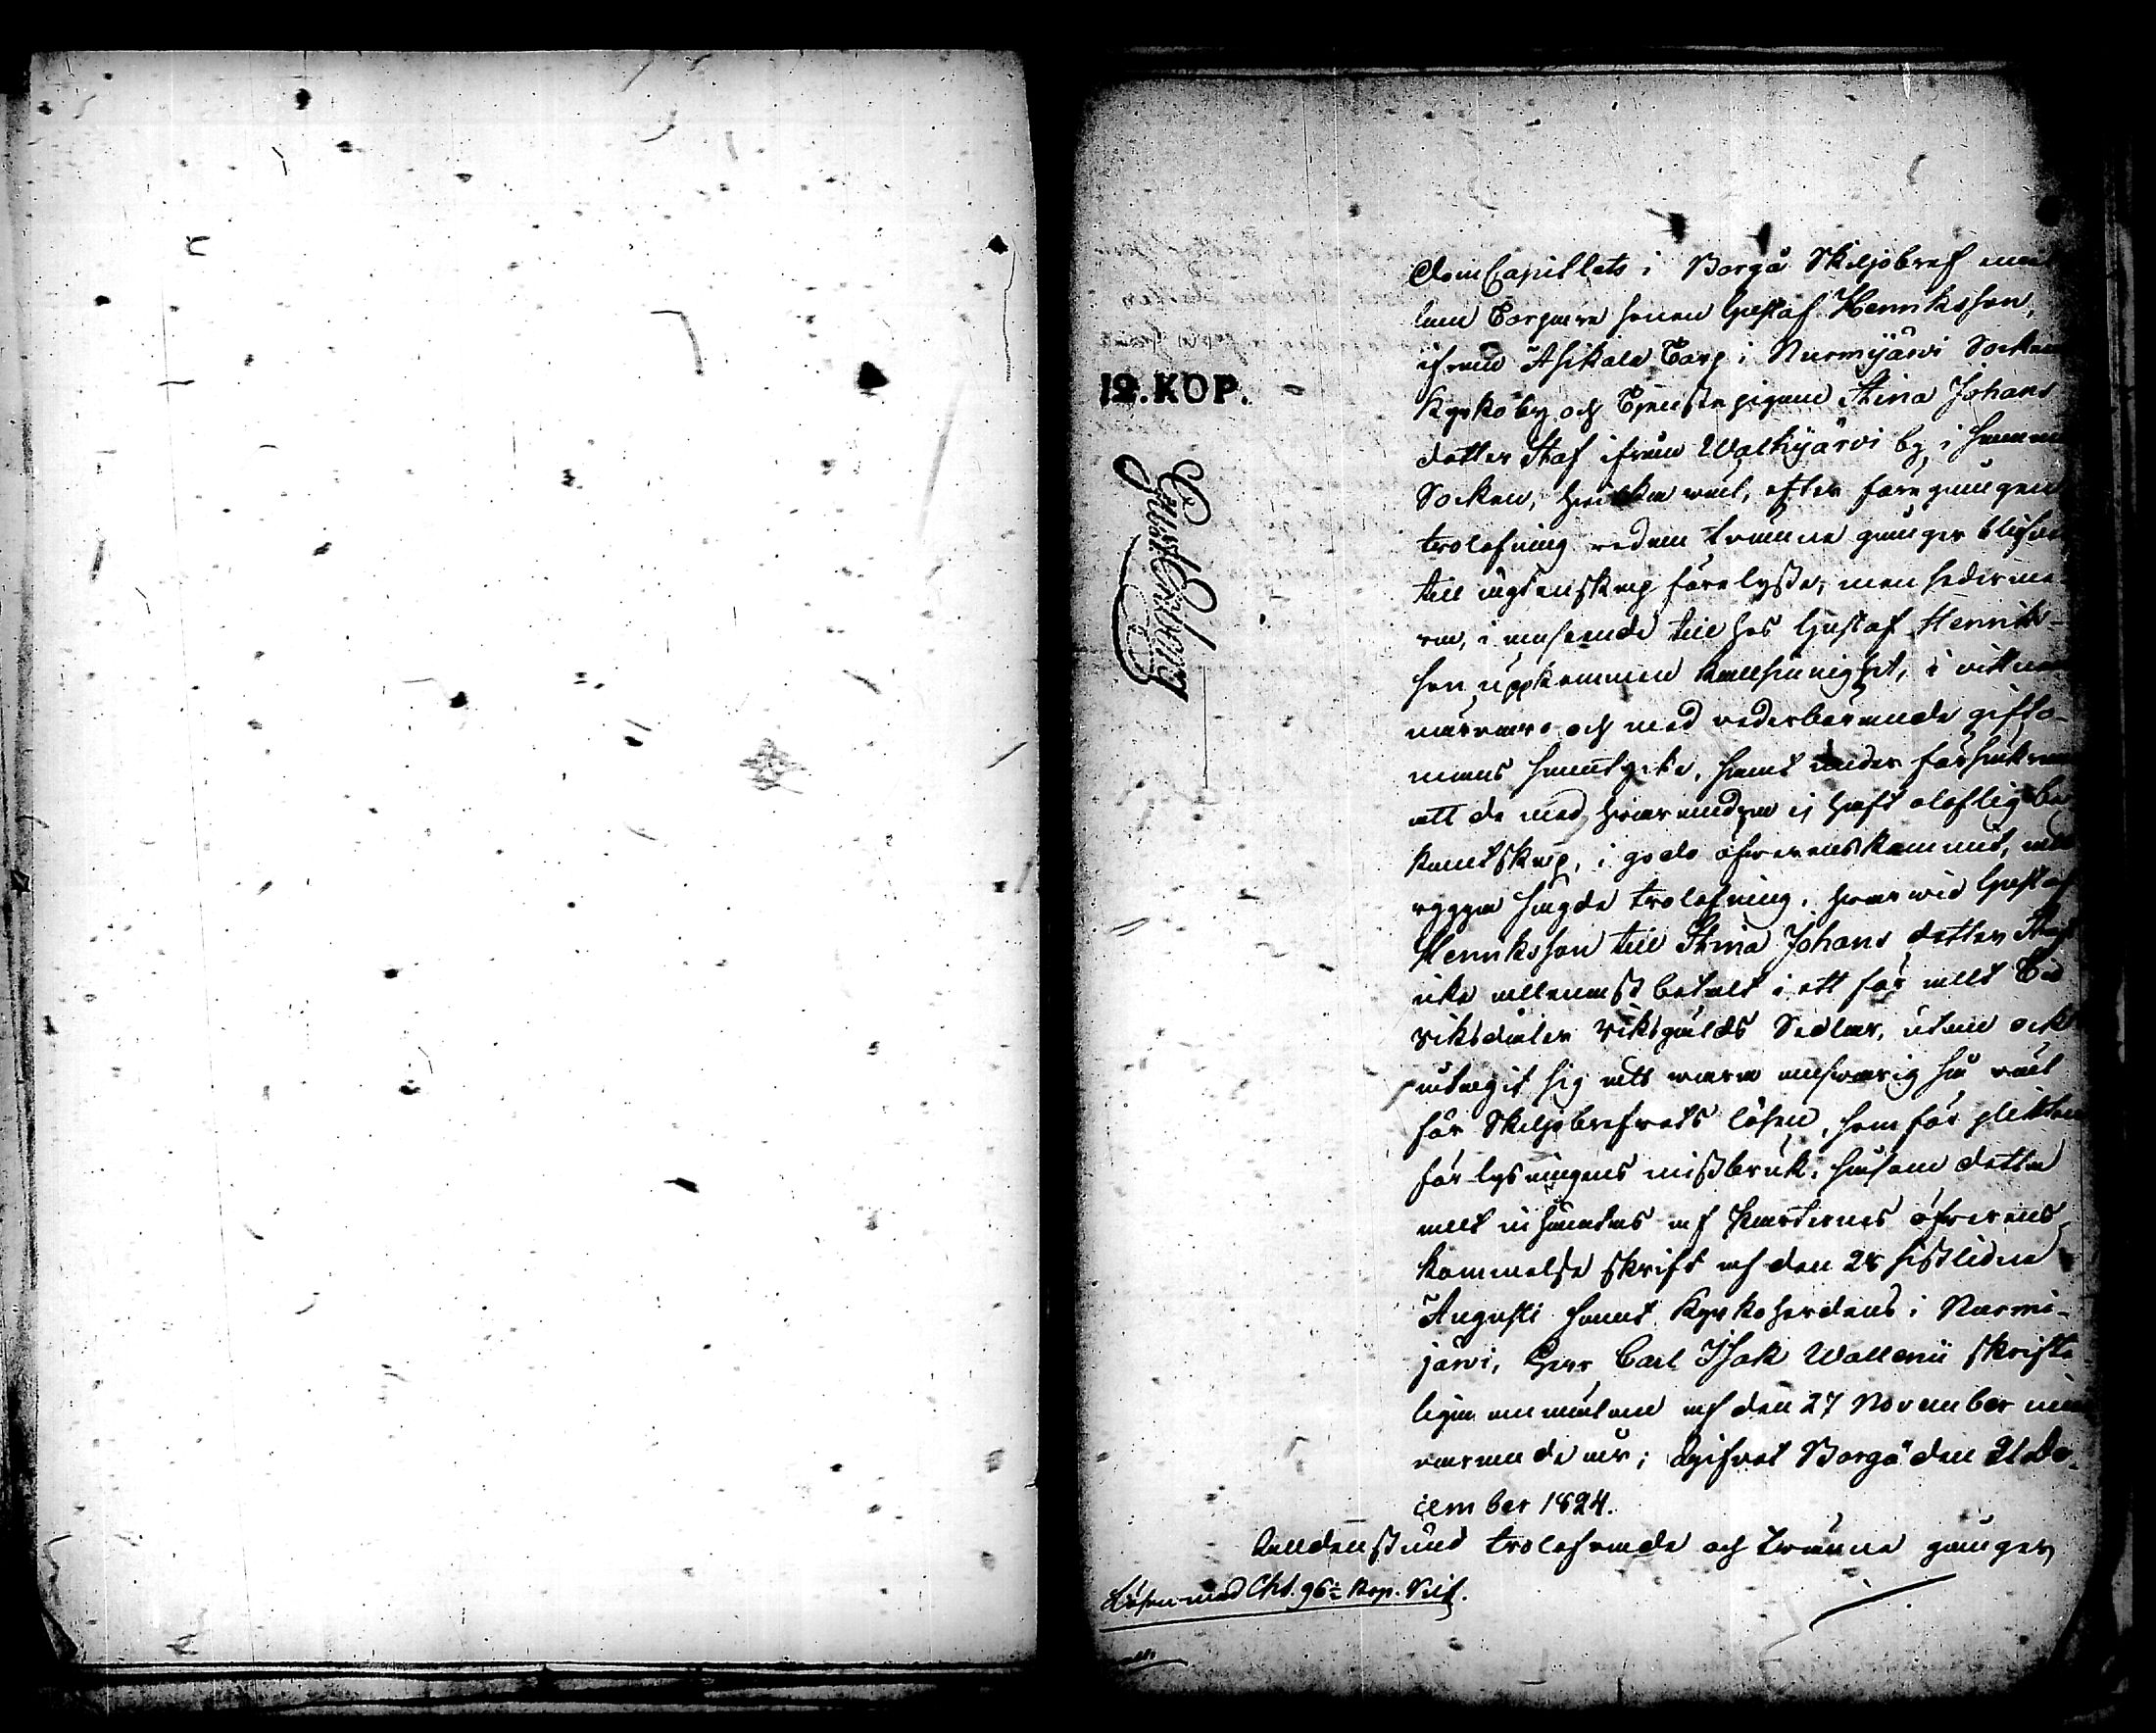 DomCapitlets i Borgå Skiljobref emel
lan Torpare sonen Gustaf Henriksson,
ifrån Ahikala Torp i Nurmijärvi Socken
12. KOP.
Kyrkoby och Tjenstepigan Stina Johans
dotter Staf ifrån Walkjärvi by i samma
Socken, hvilka väl, efter föregången
trolofning redan trenne gånger blifvit
till ägtenskap förelyste, men sedermera
ra, i anseende till hos Gustaf Henriks-
son uppkommen kallsinnighet, i vittnes
närvaro och med vederbörande gifto-
mans samtycke, samt under försäkran
att de med hvarandra ej haft oloflig be
kantskap, i godo öfverenskommit, att
rygga sagde trolofning, hvarvid Gustaf
Henriksson till Stina Johans dotter Staf
icke allenast betalt i ett för allt Tio
riksdaler riksgälds Sedlar, utan ock
åtagit sig att vara ansvarig så väl
för Skiljobrefvets lösen, som för plikten
för lysningens missbruk; såsom detta
allt inhämtas af Parternes öfverens
kommelse skrift af den 28 sistlidne
Augusti samt Kyrkoherdens i Nurmi-
järvi, Herr Carl Isak Wallenii skrifte
liga anmälan af den 27 November nu
varande år; Gifvet Borgå den 21 De-
cember 1824.
Alldenstund trolofvade och trenne gånger
Lösen med Cht. 96 Kop. Silf.